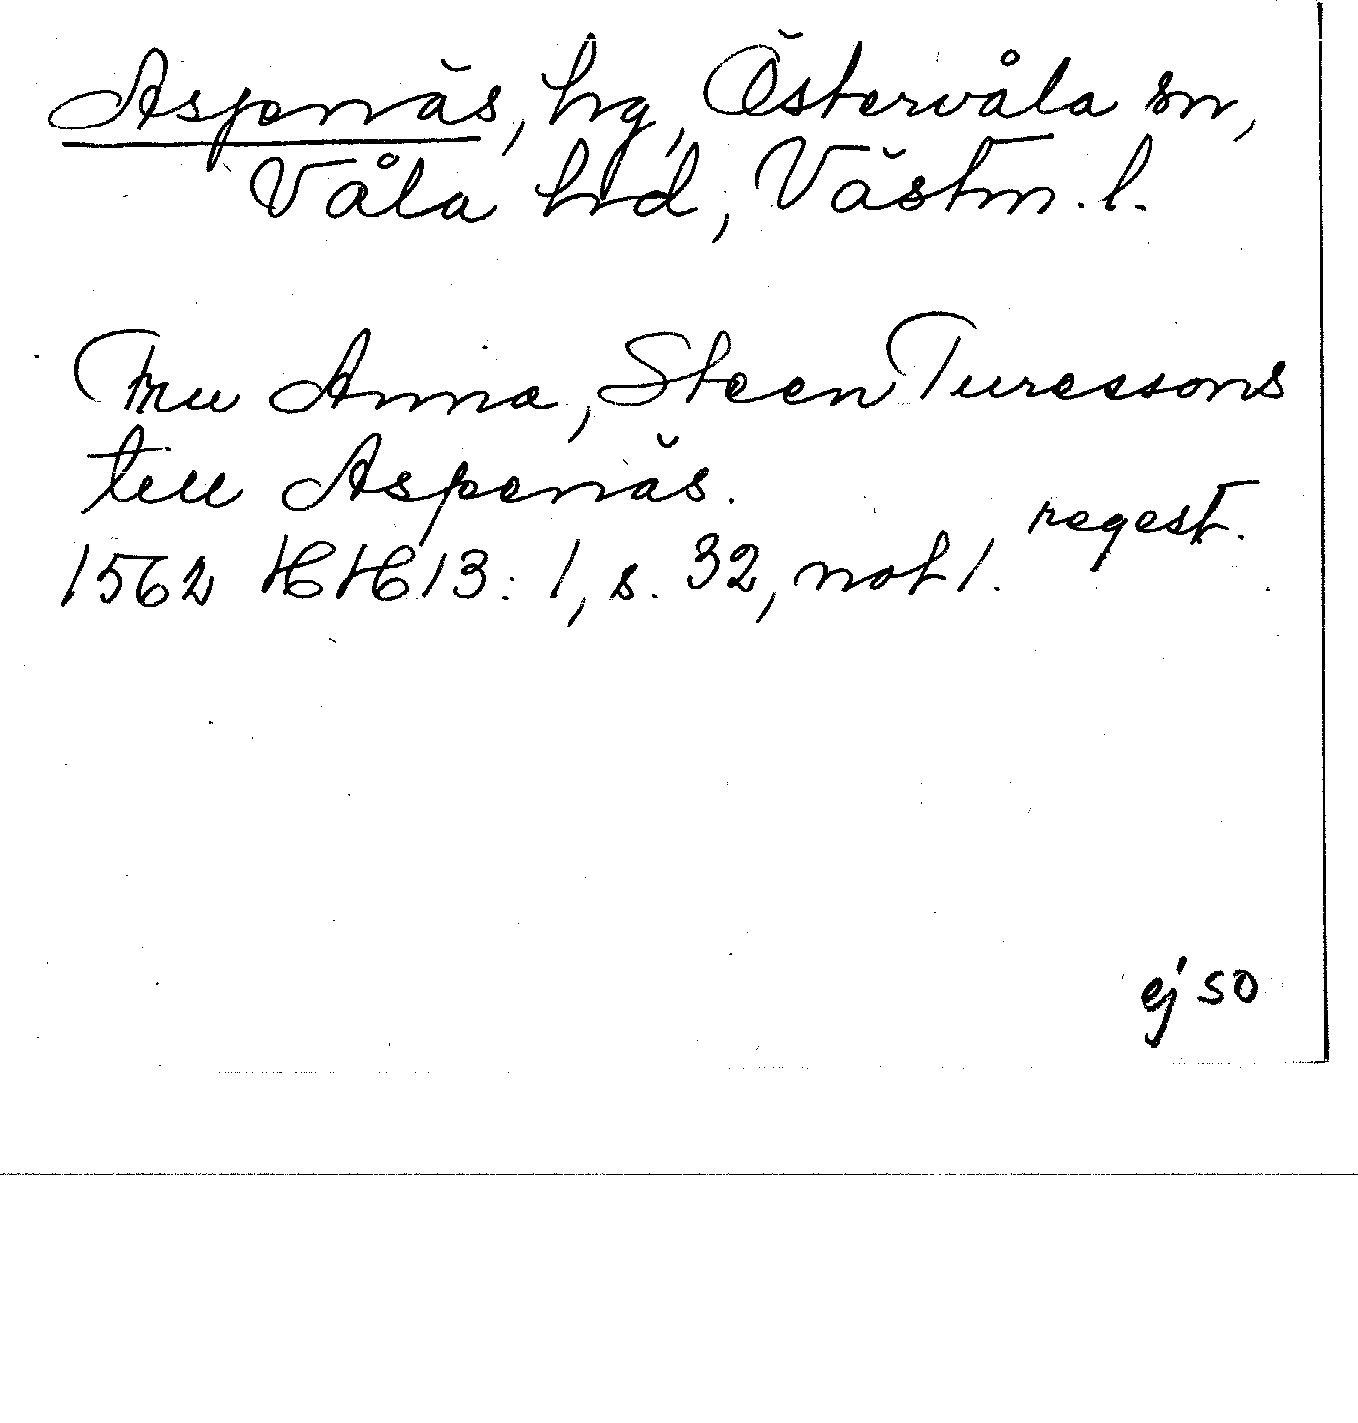 Aspenäs, hg, Östervåla sn,
Våla hd, Västm. l.
Fru Anna, Steen Turessons
till Aspenäs.
regest.
1562 HH 13: 1, s. 32, not 1.
ej SO